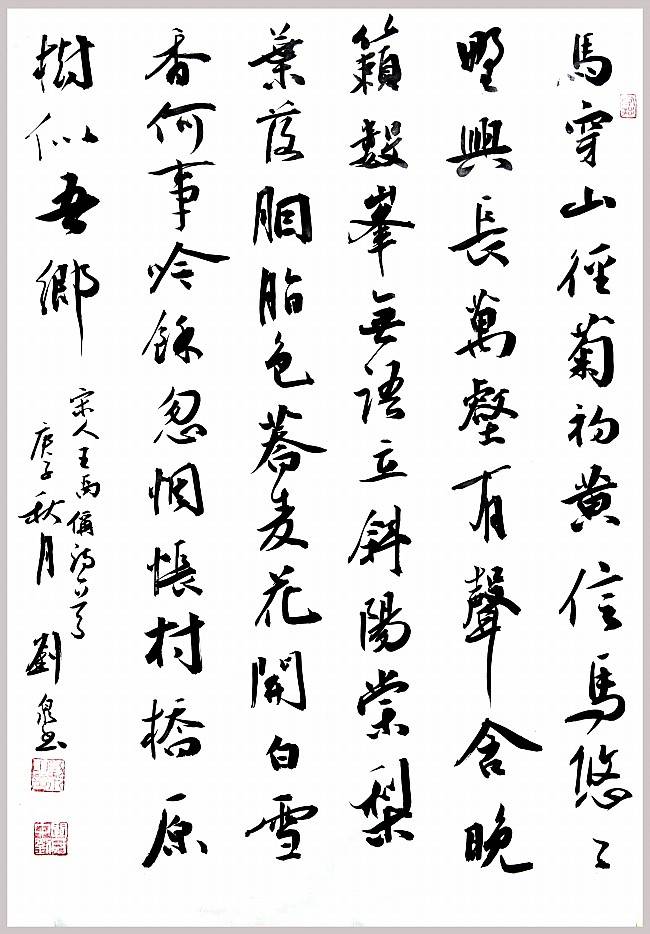 馬穿山徑菊初黄信馬悠〻
野興長萬壑有聲含晚
籟數峯無語立斜陽棠梨
葉落胭脂色蕎麦花開白雪
香何事吟餘忽惆悵村橋原
樹似吾鄉
宋人王禹偁詩一首
庚子秋月 劉泉书